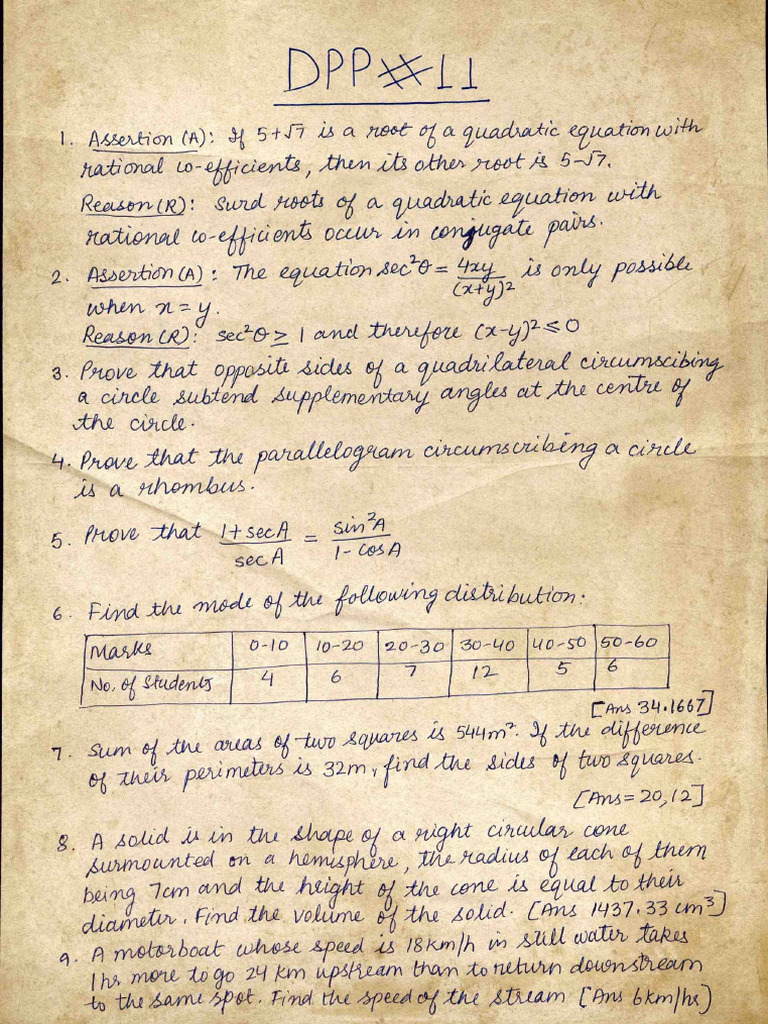 DPP#11
1. Assertion (A): If 5+√7 is a root of a quadratic equation with
rational co-efficients, then its other root is 5-√7.
Reason (R): Surd roots of a quadratic equation with
rational co-efficients occur in conjugate pairs.
2. Assertion (A): The equation sec²θ = 4xy/(x+y)² is only possible
when x = y.
Reason (R): sec²θ ≥ 1 and therefore (x-y)² ≤ 0
3. Prove that opposite sides of a quadrilateral circumscibing
a circle subtend supplementary angles at the centre of
the circle.
4. Prove that the parallelogram circumscribing a circle
is a rhombus.
5. Prove that (1+secA)/secA = sin²A/(1-cosA)
6. Find the mode of the following distribution:
Marks 0-10 10-20 20-30 30-40 40-50 50-60
No. of Students 4 6 7 12 5 6
[Ans 34.1667]
7. Sum of the areas of two squares is 544m². If the difference
of their perimeters is 32m, find the sides of two squares.
[Ans = 20,12]
8. A solid is in the shape of a right circular cone
surmounted on a hemisphere, the radius of each of them
being 7cm and the height of the cone is equal to their
diameter. Find the volume of the solid. [Ans 1437.33 cm³]
9. A motorboat whose speed is 18km/h in still water takes
1hr more to go 24 km upstream than to return downstream
to the same spot. Find the speed of the stream [Ans 6km/hs]